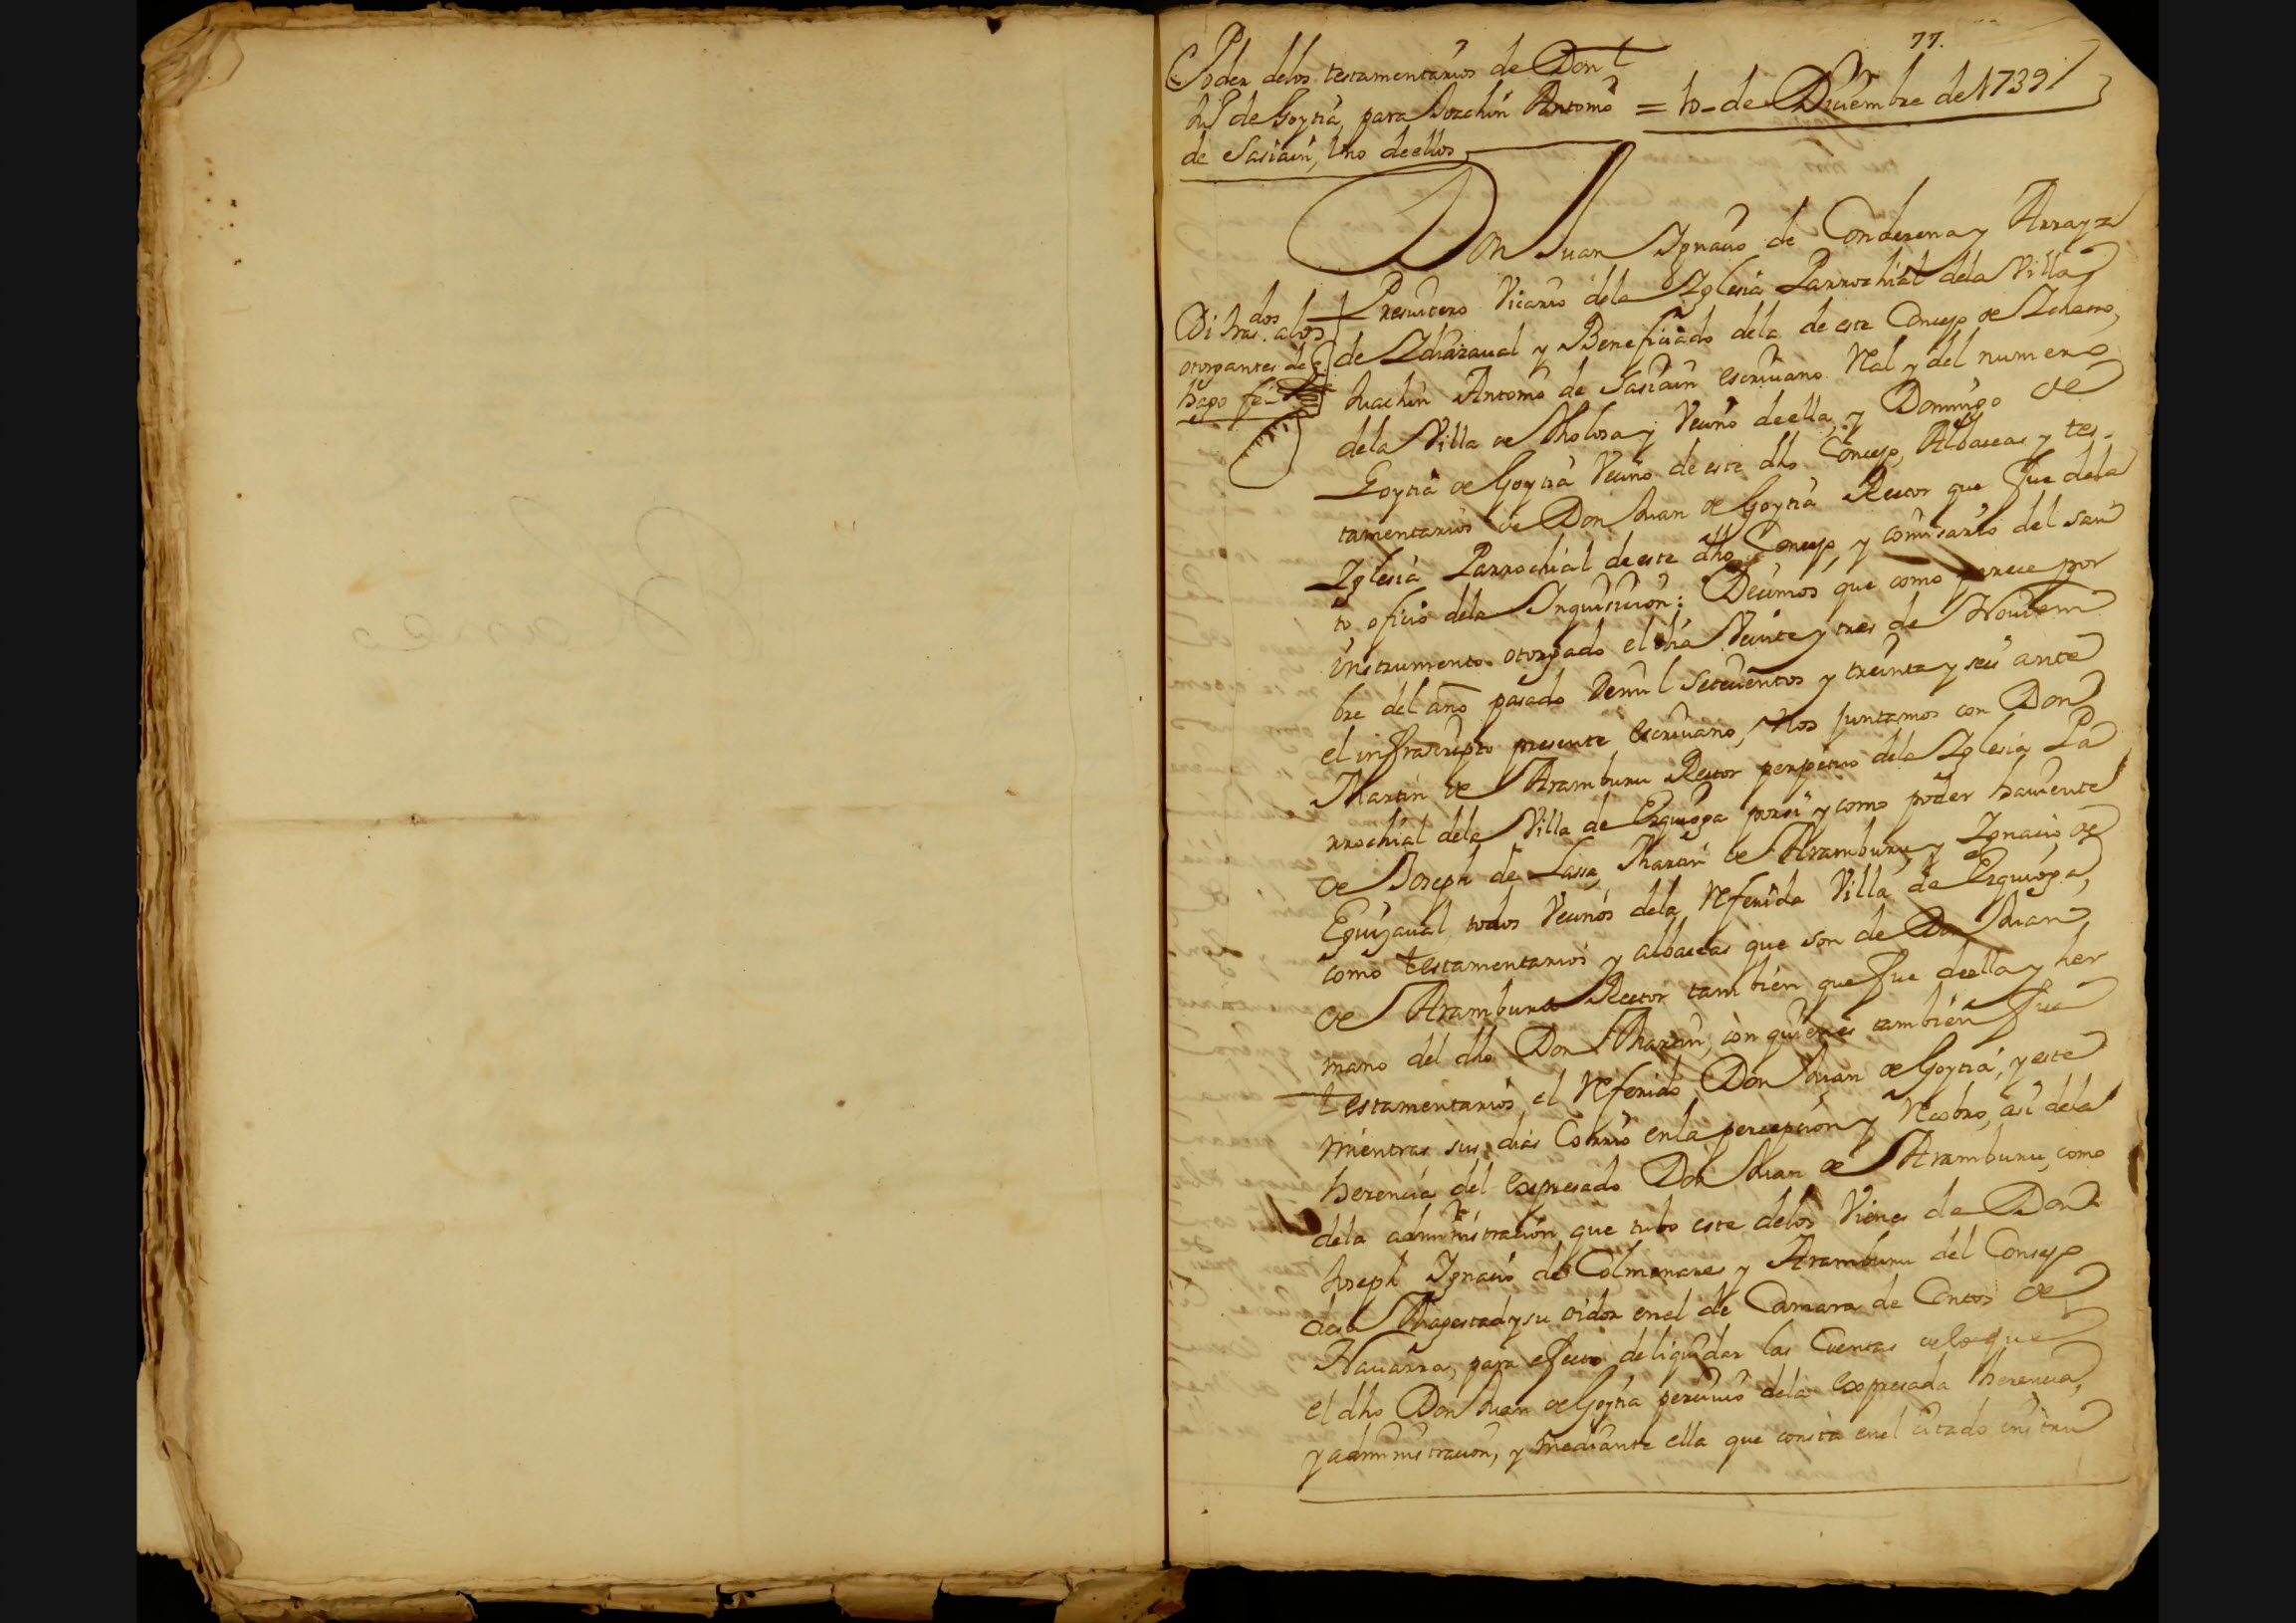 77.
Poder delos testamentarios de Don
de Goytia, para Joachin Antonio = 10 de Diciembre de 1739
de Sasiain, Uno deellos
Don Juan Ignacio de Conderena y Arrayz
Presvitero Vicario dela Iglesia Parrochial dela Villa
de Ydiazaval y Beneficiado dela de este Concejo de
Juachin Antonio de Sasiain escrivano Real y del numero
dela Villa de Tholosa y Vecino deella, y Domingo de
Goytia de Goytia Vecino de este dho Concejo, Albaceas y tes-
tamentarios de Don Juan de Goytia Rector que fue dela
Iglesia Parrochial de este dho Concejo, y comisario del san
to oficio dela Inquisicion: Decimos que como parece por
instrumento otorgado el dia Veinte y tres de Noviem
bre del año pasado demil setecientos y treinta y seis ante
el infrascripto presente escrivano, Nos juntamos con Don
Martin de Aramburu Rector perpetuo dela Iglesia Pa
rrochial dela Villa de Ezquioga porsi y como poder haviente
de Joseph de Lasa, Martin de Aramburu, y Ignacio de
Eguizaval todos Vecinos dela Referida Villa de Ezquioga,
como testamentarios y albaceas que son de Don Juan
de Aramburu Rector tambien que fue deella y her
mano del dho Don Martin, con quienes tambien fue
testamentarios el Referido Don Juan de Goytia, y este
mientras sus dias Corrio enla percepcion y Recobro, asi dela
herencia del expresado Don Juan de Aramburu, como
dela administracion que tubo este delos Vienes de Don
Joseph Ignacio de Colmenares y Aramburu del Consejo
desu Magestad y su oidor enel de Camara de Contos de
Navarra, para efecto de liquidar las Cuentas delo que
el dho Don Juan de Goytia percivio dela expresada herencia,
y administracion, y mediante ella que consta enel citado instru
dos
Di tras. alos
otorgantes de
hago fe